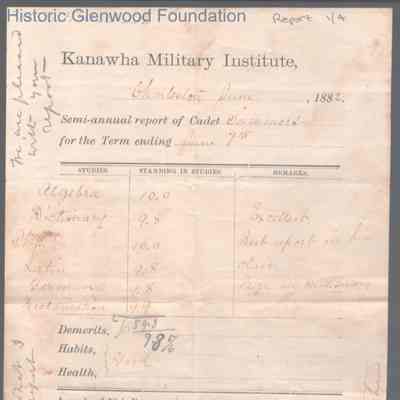 Historic Glenwood Foundation
Report 1/4
Kanawha Military Institute,
Charleston June, 1882.
Semi-annual report of Cadet Summers
for the Term ending June 7th
We are pleased
with your
report
STUDIES. STANDING IN STUDIES. REMARKS.
Algebra 10.0
Dictionary 9.8 Excellent
10.0 Best report in his
Latin 9.8 class
German 9.8 in Dictionary
Declamation 9.9
Demerits, 59.3
98%
Habits, Good
Health,